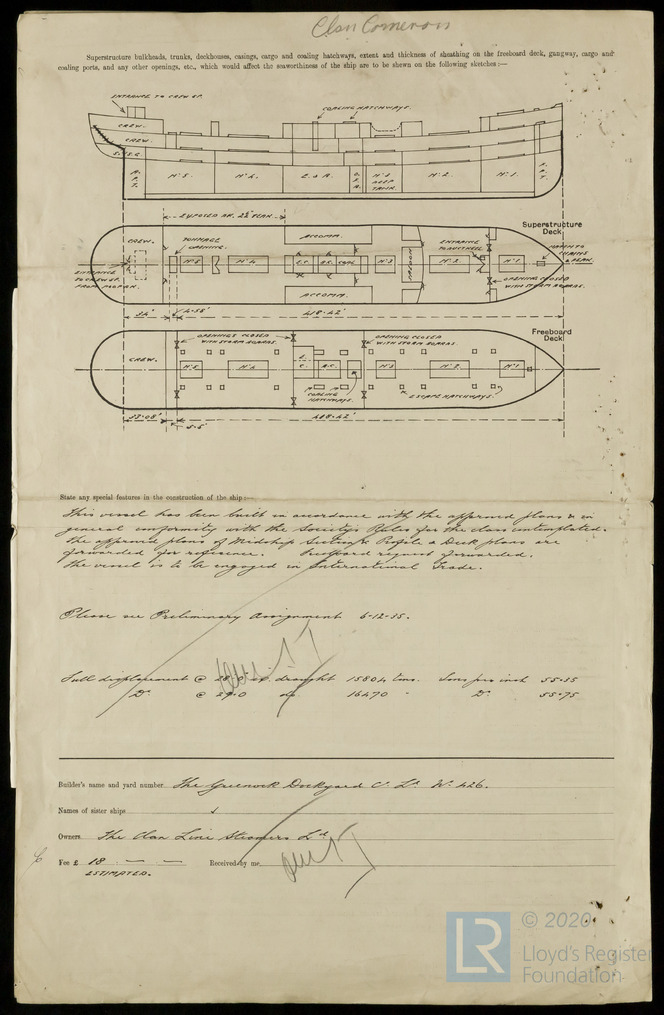 Clan Cameron
Superstructure bulkheads, trunks, deckhouses, casings, cargo and coaling hatchways, extent and thickness of sheathing on the freeboard deck, gangway, cargo and
coaling ports, and any other openings, etc., which would affect the seaworthiness of the ship are to be shewn on the following sketches:—
ENTRANCE TO CREW SP.
COALING HATCHWAYS.
CREW.
CREW.
S.G.C.
A.P.T.
Nº 5.
Nº 4.
E. & B.
Nº 3 DEEP TANK.
Nº 2.
Nº 1.
F.P.T.
EXPOSED Mn. 2½" TEAK.
Superstructure
Deck
CREW.
TONNAGE OPENING.
ACCOMM.
Nº 5
Nº 4
E.C.
B.C.
Nº 3
Nº 2
Nº 1
ENTRANCE TO CREW SP. FROM POOP DK.
ACCOMM.
OPENING CLOSED WITH STORM BOARDS.
34'
4·58'
418·42'
Freeboard
Deck
OPENINGS CLOSED WITH STORM BOARDS.
OPENING CLOSED WITH STORM BOARDS.
CREW.
Nº 5
Nº 4
E.C.
B.C.
Nº 3
Nº 2
Nº 1
COALING HATCHWAYS.
ESCAPE HATCHWAYS.
33·08'
5·5'
418·42'
State any special features in the construction of the ship:—
This vessel has been built in accordance with the approved plans & in
general conformity with the Society's Rules for the class contemplated.
The approved plans of Midship Section & Profile & Deck plans are
forwarded for reference. Freeboard request forwarded.
The vessel is to be engaged in International Trade.
Please see Preliminary Assignment 6-12-35.
Full displacement @ 28.0 ex. draught 15804 tons. Tons per inch 55·35
Dº. @ 29.0 do. 16470 " Dº. 55·75
Builder's name and yard number The Greenock Dockyard Cº. Lᵈ. Nº. 426.
Names of sister ships
Owners The Clan Line Steamers Lᵈ.
Fee £ 18 — — Received by me,
ESTIMATED.
LR
© 2020
Lloyd's Register
Foundation